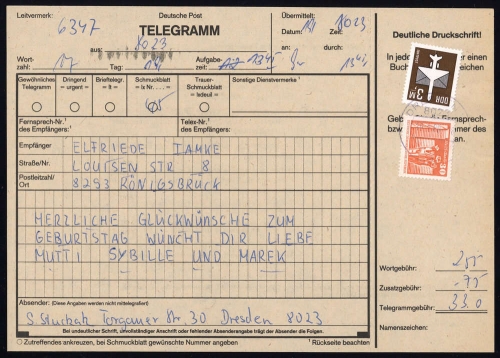 Leitvermerk: 6347
Deutsche Post
TELEGRAMM
aus: 8023
Übermittelt:
Datum: Zeit: 8023
an: durch:
Wortzahl: 17 Tag: Aufgabezeit: 1345
Deutliche Druckschrift!
Gewöhnliches Telegramm
Dringend = urgent =
Brieftelegr. = lt =
Schmuckblatt = lx Nr. ... =
Trauer-Schmuckblatt = lxdeuil =
Sonstige Dienstvermerke ¹
Fernsprech-Nr. des Empfängers: ¹
Telex-Nr. des Empfängers: ¹
Empfänger ELFRIEDE TAMKE
Straße/Nr. LOUISEN STR 8
Postleitzahl/Ort 8293 KÖNIGSBRÜCK
HERZLICHE GLÜCKWÜNSCHE ZUM
GEBURTSTAG WÜNCHT DIR LIEBE
MUTTI SYBILLE UND MAREK
Absender: (Diese Angaben werden nicht mittelegrafiert)
Torgauer Str. 30 Dresden 8023
Bei undeutlicher Schrift, unvollständiger Anschrift oder fehlender Absenderangabe trägt der Absender die Folgen.
Zutreffendes ankreuzen, bei Schmuckblatt gewünschte Nummer angeben
¹ Rückseite beachten
DDR 3 M
30
Wortgebühr: 255
Zusatzgebühr: -75
Telegrammgebühr: 330
Namenszeichen: